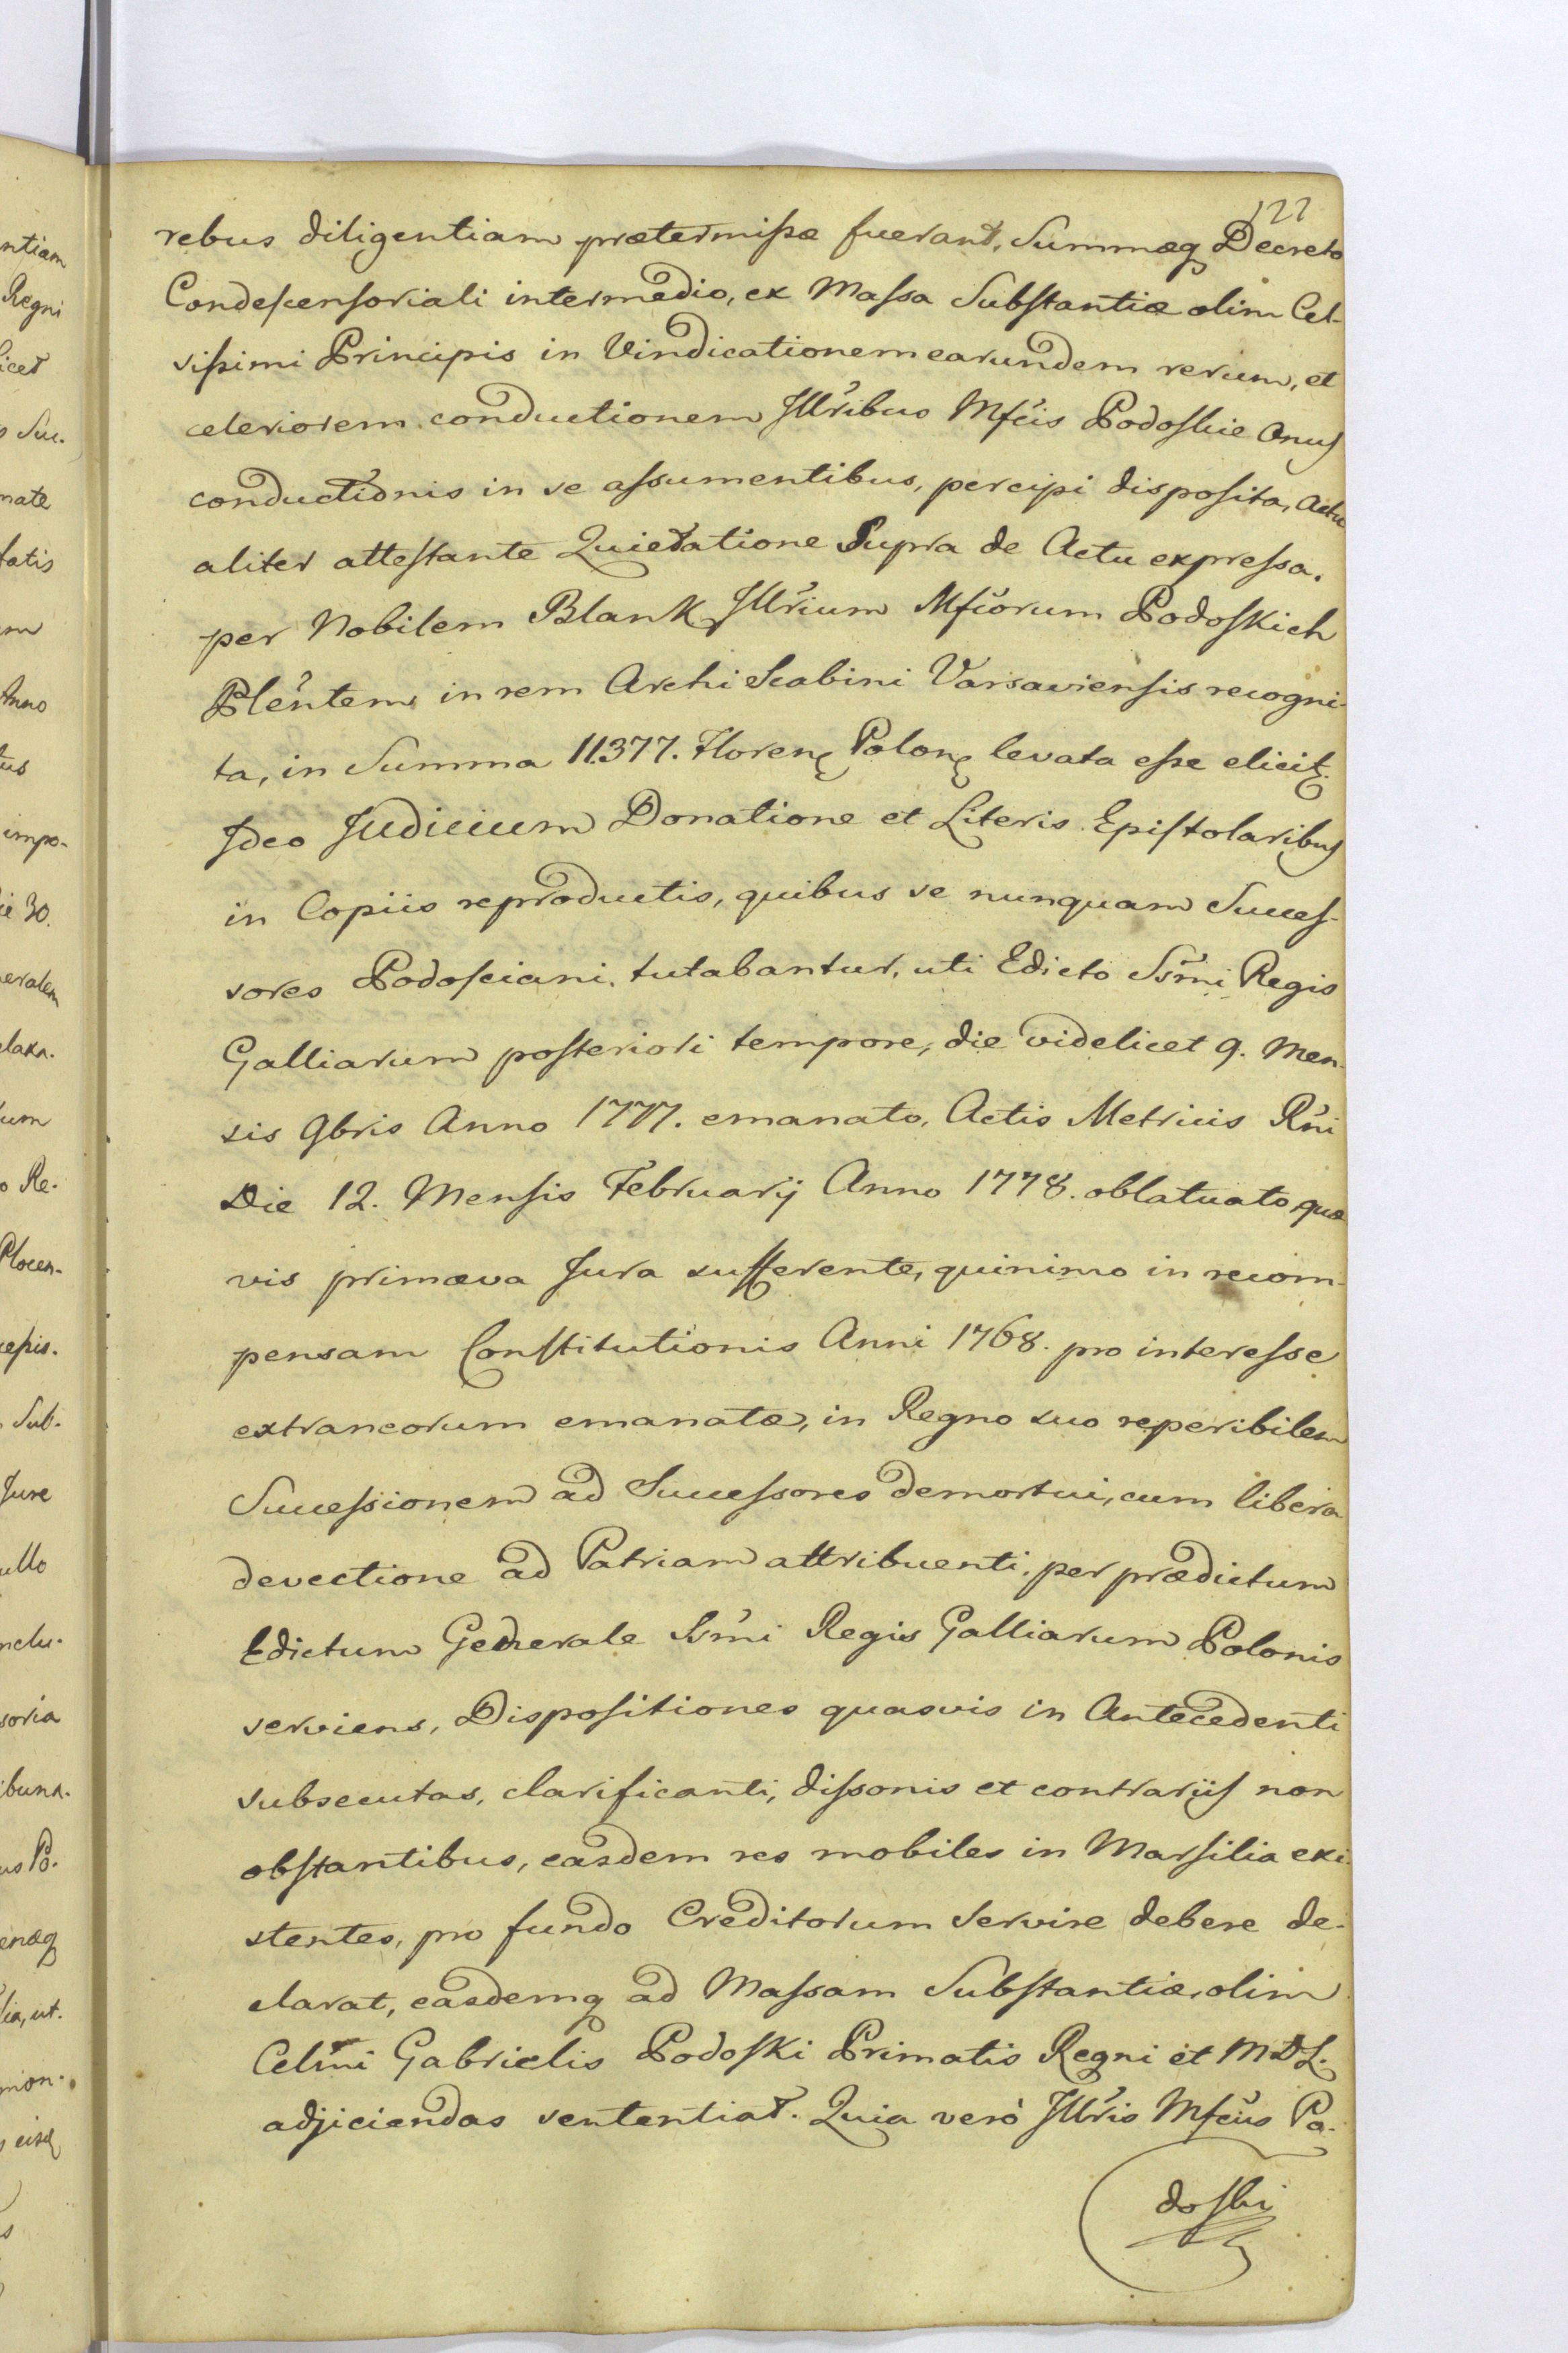 122
rebus diligentiam prætermissæ fuerant, Summæq Decreto
Condescensoriali intermedio, ex Massa Substantiæ olim Cel-
sissimi Principis in Vindicationem earundem rerum, et
celeriorem conductionem Jllribus Mfcis Podoskie Onus
conductionis in se assumentibus, percipi disposita, Actu
aliter attestante Quietatione Supra de Actu expressa,
per Nobilem Blank Jllrium Mfcorum Podoskich
Plentem in rem Archi Scabini Varsaviensis recogni-
ta, in Summa 11377. Floren Polon levata esse elicit.
Jdeo Judicium Donatione et Literis Epistolaribus
in Copiis reproductis, quibus se nunquam Succes-
sores Podosciani, tutabantur, uti Edicto Ssmi Regis
Galliarum posteriori tempore, die videlicet 9. Men-
sis 9bris Anno 1777. emanato, Actis Metricis Rni
Die 12. Mensis Februarij Anno 1778. oblatuato quæ
vis primæva Jura sufferente, quinimo in recom-
pensam Constitutionis Anni 1768. pro interesse
extraneorum emanatæ, in Regno suo reperibilem
Successionem ad Successores demortui, cum libera
devectione ad Patriam attribuenti, per prædictum
Edictum Generale Ssmi Regis Galliarum Polonis
serviens, Dispositiones quasvis in Antecedenti
subsecutas, clarificanti, dissonis et contrariis non
obstantibus, easdem res mobiles in Marsilia exi-
stentes, pro fundo Creditorum servire debere de-
clarat, easdemq ad Massam Substantiæ, olim
Celmi Gabrielis Podoski Primatis Regni et MDL.
adjiciendas sententiat. Quia verò Jllris Mfcus Po-
doski
ntiam
Regni
icet
Suc-
mate
tatis
m
Anno
tus
impo-
ie 30.
eralem
um
o Re-
Plocen-
Sub-
Jure
ullo
nclu-
soria
ibuna-
us Po-
enæq
lia, ut-
mon-